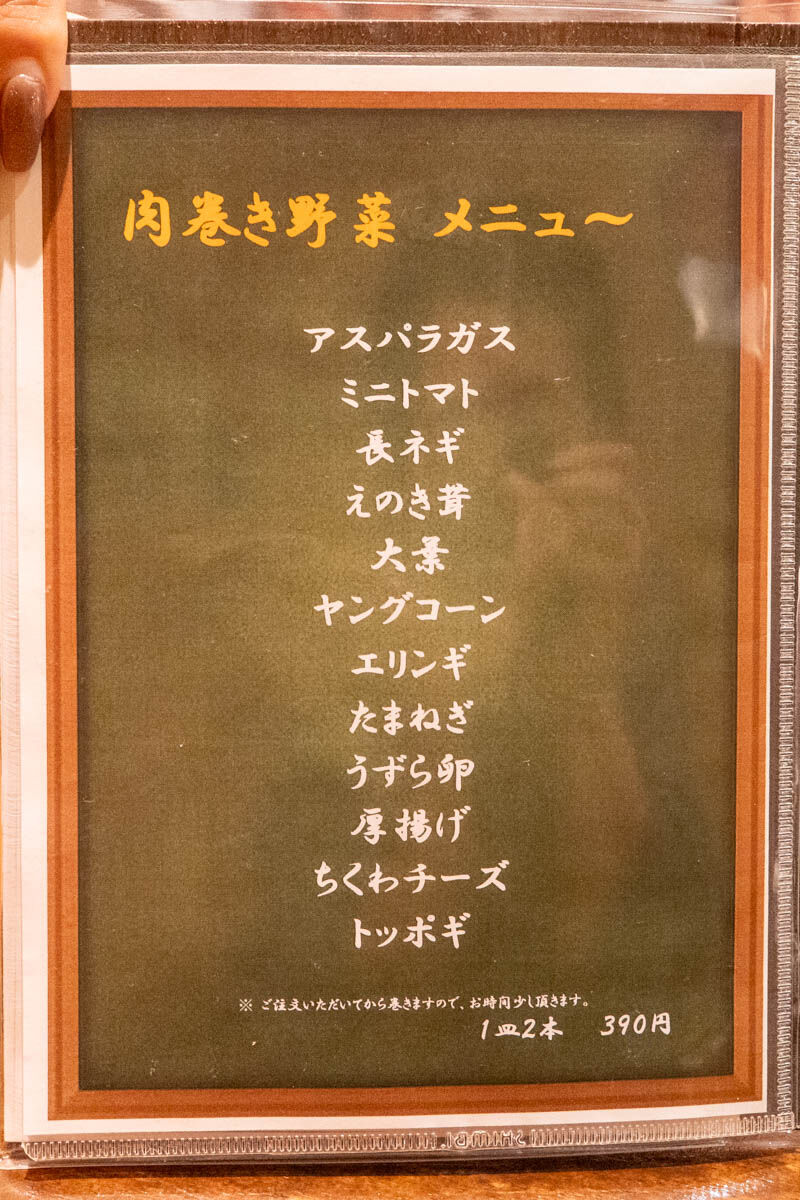 肉巻き野菜 メニュ～
アスパラガス
ミニトマト
長ネギ
えのき茸
大葉
ヤングコーン
エリンギ
たまねぎ
うずら卵
厚揚げ
ちくわチーズ
トッポギ
※ ご注文いただいてから巻きますので、お時間少し頂きます。
1皿2本 390円